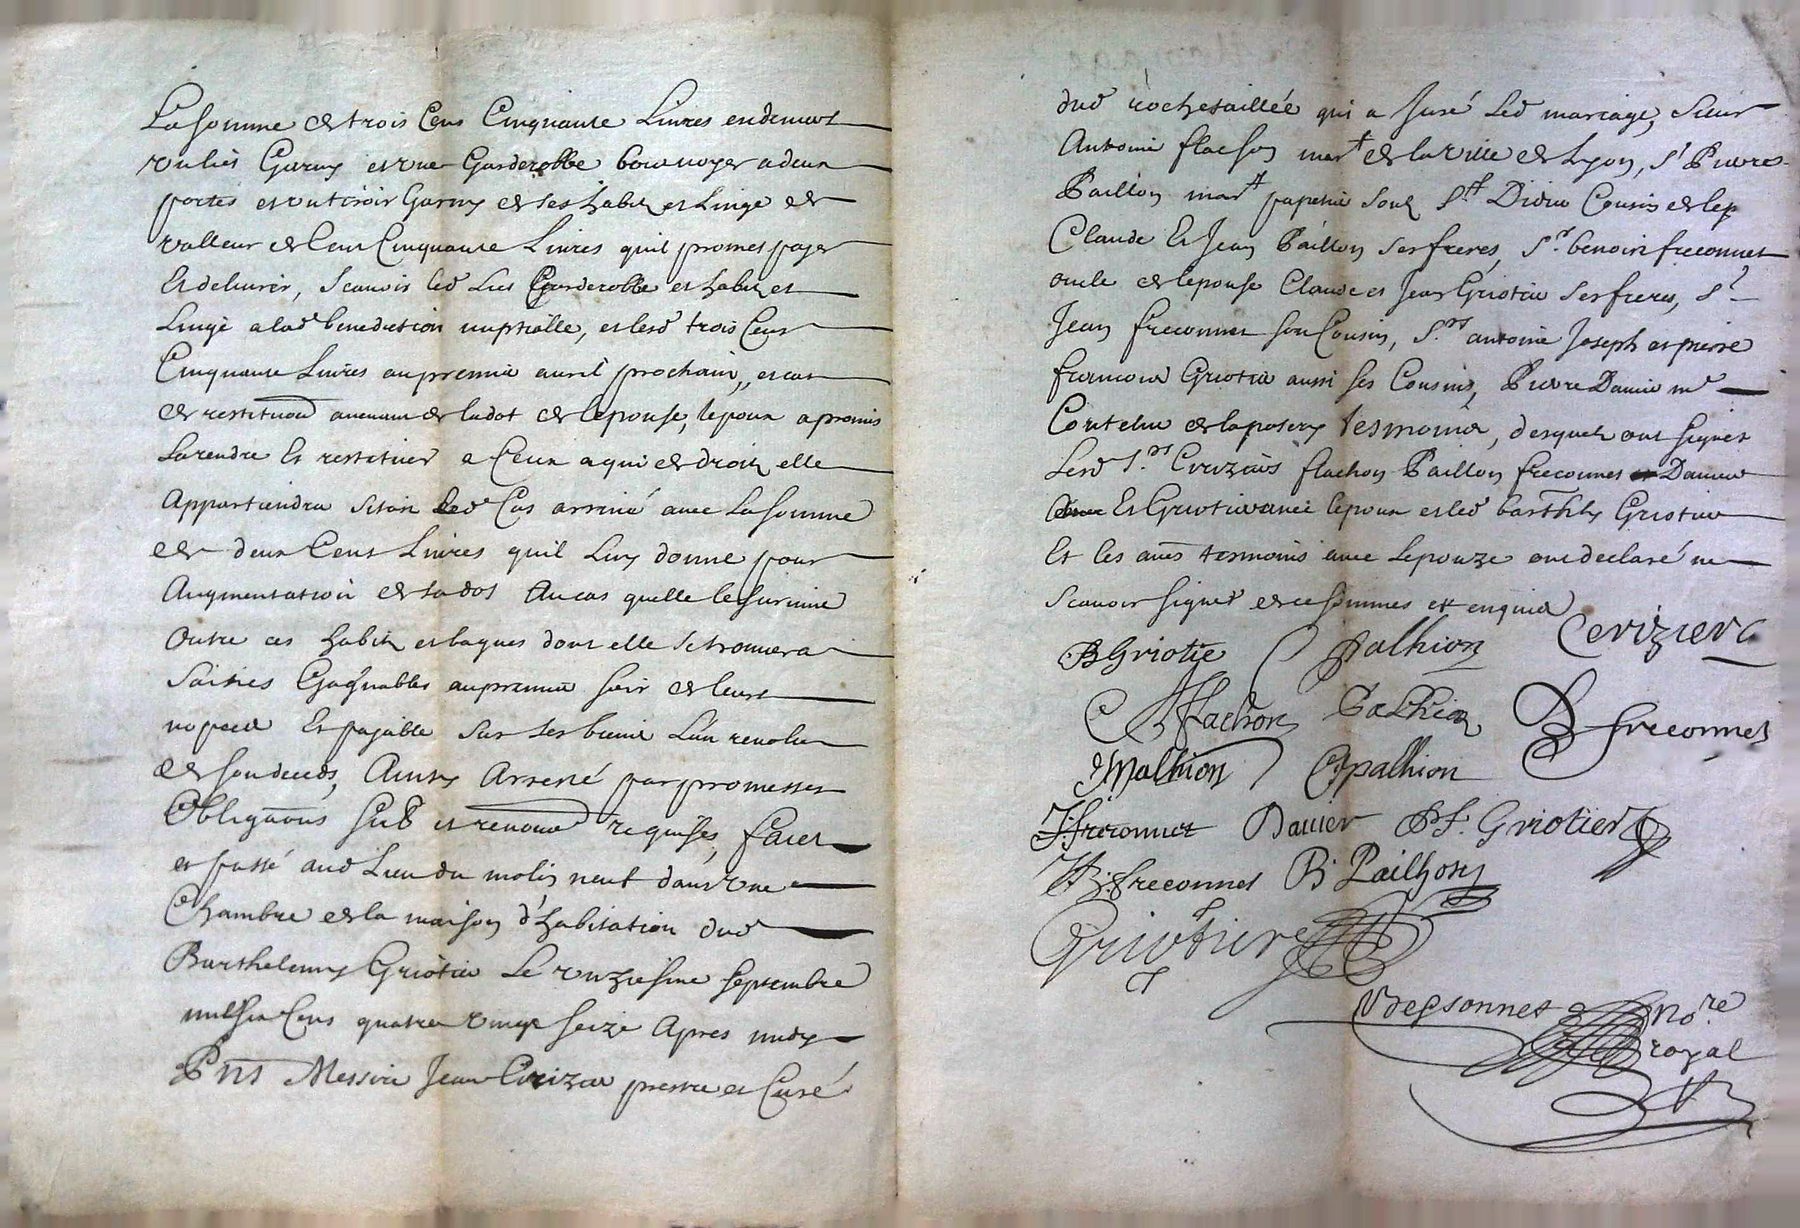 La somme de trois Cens Cinquante Livres en deniers
un lict Garny et une Garderobbe bois noyer a deux
portes et un tiroir Garny de ses habitz et Linge de
valleur de Cent Cinquante Livres quil promet payer
Et delivrer, scavoir led Lict Garderobbe et habitz et
Linge a lad benediction nuptialle, et lesd trois Cens
Cinquante Livres au premier avril prochain, et cas
de restituon avenant de la dot de lepouse, lepoux a promis
La rendre Et restituer a Ceux a qui de droit elle
Appartiendra Sitost led Cas arrivé avec La somme
de deux Cent Livres quil Luy donne pour
Augmentation de sa dot Au cas quelle le survive
Outre ces habitz et bagues dont elle se trouvera
Saisies Gagnables au premier soir de leurs
nopces Et payable Sur ses biens L'an revolu
de son deceds, Ainsy Arresté par promesses
Obligaons Sub et renonon requises, faict
et passé aud Lieu du molin neuf dans une
Chambre de la maison d'habitation dud
Barthelemy Griotier Le unziesme septembre
mil six Cens quatre vingt seize Apres midy
Pnt Messire Jean Cerizier prestre et Curé
dud rochetaillée qui a Juré led mariage, sieur
Antoine flachon mart de la ville de Lyon, Sr Pierre
Paillon mart papetier Soubz St Didier Cousin de lep
Claude Et Jean Paillon ses freres, Sr benoist freconnet
oncle de lepouse Claude et Jean Griotier ses freres, Sr
Jean freconnet son Cousin, Srs antoine Joseph et pierre
Griotier aussi ses Cousins, Pierre Danier me
tesmoins, desquels ont signes
Lesd Srs Cerizier flachon Paillon freconnet Danier
Et Griotier avec lepoux et led barthly Griotier
Et les aues tesmoins avec Lepouze ont declaré ne
Scavoir signer de ce sommes et enquis
BGriotie Palhion Cerizier C
Flachon Palhion B freconnet
JMalhion Cpalhion
J:freconnet Danier P f. Griotier
freconnet B Pailhon
Griotier
Vdepsonnet Nore
royal